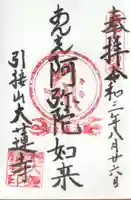 奉拝 令和三年八月廿六日
あんざん 阿弥陀如来
引接山 大蓮寺